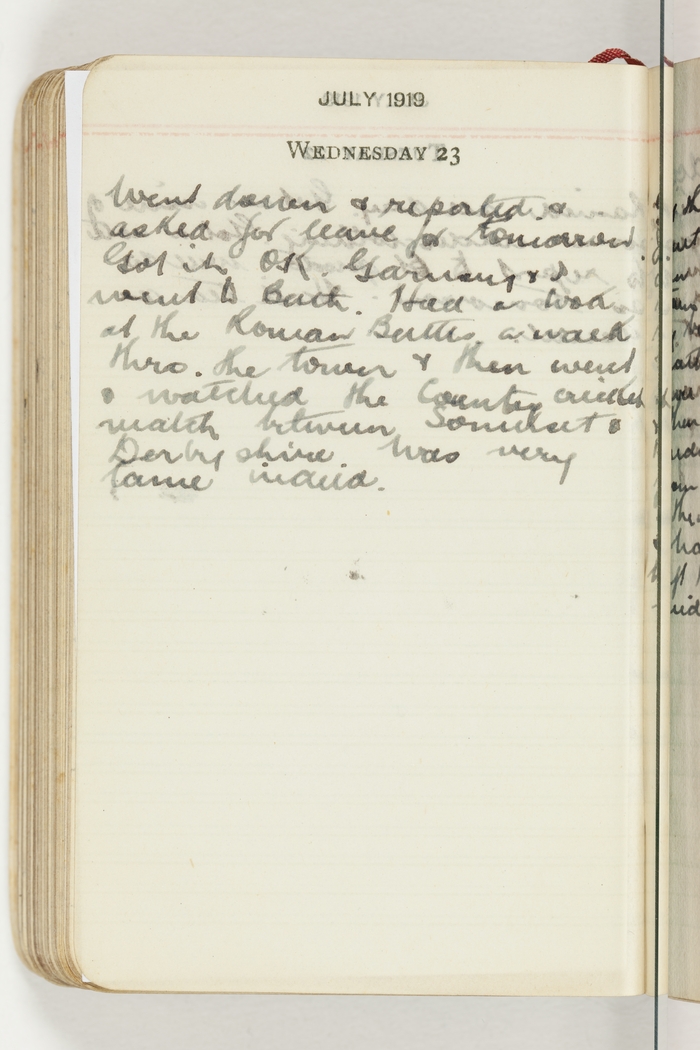 JULY 1919
WEDNESDAY 23
Went down & reported. &
asked for leave for tomorrow.
Got it OK. & I
went to Bath. Had a look
at the Roman Baths. a walk
thro. the town & then went
& watched the County cricket
match between Somerset &
Derbyshire. Was very
tame indeed.